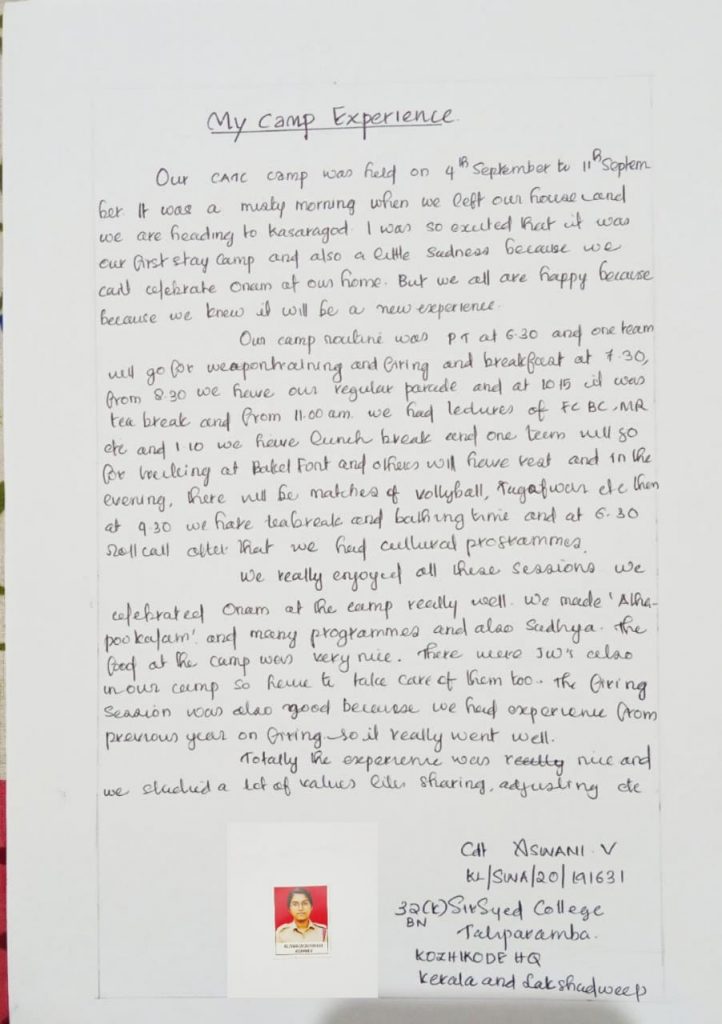 My Camp Experience.
Our CATC camp was held on 4th September to 11th Septem
ber. It was a misty morning when we left our house and
we are heading to Kasaragod. I was so excited that it was
our first stay camp and also a little sadness because we
can't celebrate Onam at our home. But we all are happy because
because we knew it will be a new experience.
Our camp routine was PT at 6.30 and one team
will go for weapontraining and firing and breakfast at 7.30,
from 8.30 we have our regular parade and at 10 15 it was
tea break and from 11.00 am. we had lectures of FC BC, MR
etc and 1 10 we have lunch break and one team will go
for trecking at Bakel Font and others will have rest and in the
evening, there will be matches of vollyball, Tugofwar etc then
at 4.30 we have teabreak and bathing time and at 6.30
Roll call after that we had cultural programmes.
We really enjoyed all these sessions we
celebrated Onam at the camp really well. We made 'Atha-
pookalam' and many programmes and also Sadhya. The
food at the camp was very nice. There were JW's also
in our camp so have to take care of them too. The firing
session was also good because we had experience from
previous year on firing so it really went well.
Totally the experience was really nice and
we studied a lot of values like sharing, adjusting etc
Cdt ASWANI. V
KL/SWA/20/191631
32(K) Sir Syed College
BN
Taliparamba.
KOZHIKODE HQ
Kerala and Lakshadweep